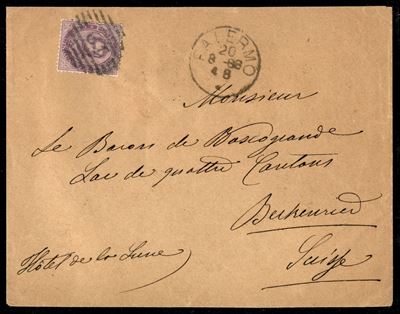 PALERMO
20
8 - 88
4 S
Monsieur
Le Baron de Boscogrande
Lac de quattre Cantons
Beckenried
Suisse
Hôtel de la Lune